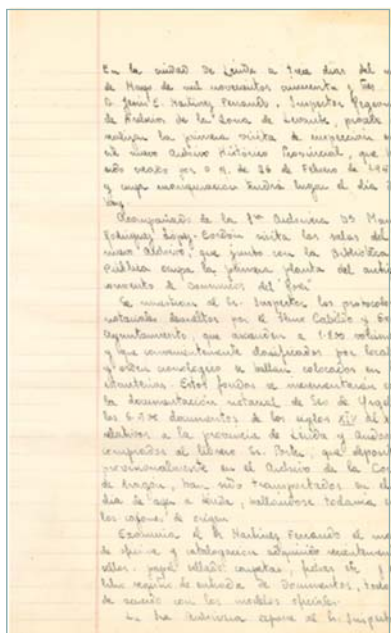 En la ciudad de Lérida a trece días del m
de Mayo de mil novecientos cincuenta y tres
D. Jesús E. Martínez Ferrando, Inspector Region
de Archivos de la Zona de Levante, procede
realizar la primera visita de inspección
este nuevo Archivo Histórico Provincial, que
sido creado por O.M. de 26 de Febrero de 195
y cuya inauguración tendrá lugar el día
hoy.
Acompañado de la Sra Archivera Dª
Rodríguez López-Cordón visita las salas del
nuevo Archivo, que junto con la Biblioteca
Pública ocupa la primera planta del anti
convento de Dominicos del "Roser"
Se muestran al Sr. Inspector los protocolos
notariales devueltos por el Ilmo Cabildo y
Ayuntamiento, que ascienden a 1.800 volúme
y que convenientemente clasificados por local
y orden cronológico se hallan colocados en
estanterías. Estos fondos se incrementarán
la documentación notarial de Seo de Urgel
los documentos de los siglos XIV al
relativos a la provincia de Lérida y
comprados al librero Sr. que deposit
provisionalmente en el Archivo de la Co
de Aragón, han sido transportados en el
día de ayer a Lérida, hallándose todavía
los cajones de origen
Examina el Sr Martínez Ferrando el
de oficina y catalogación adquirido recientemen
sellos, papel sellado carpetas, fichas etc. y
libro registro de entrada de documentos, todo
de acuerdo con los modelos oficiales.
La Sra Archivera expone al Sr. Inspect